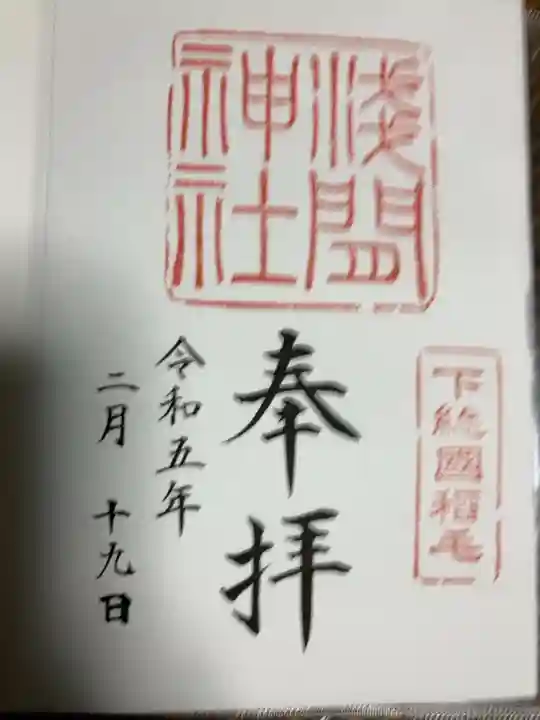 浅間
神社
下総國稲毛
奉拝
令和五年
二月 十九日